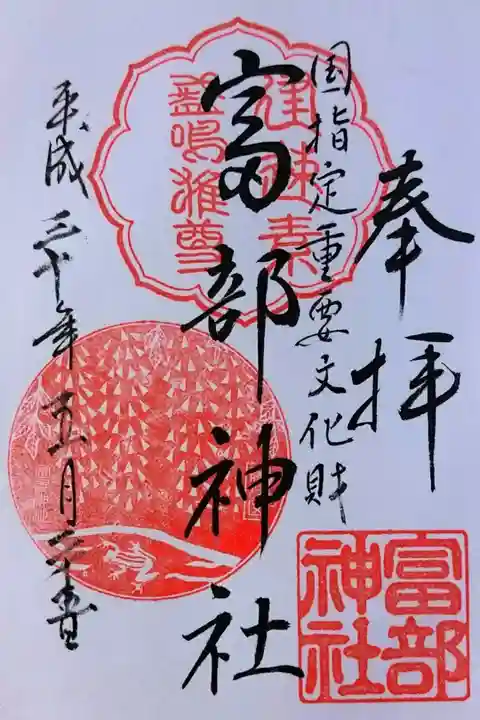 奉拝
国指定重要文化財
建速素
盞鳴雄尊
富部神社
富部
神社
平成三十年五月二十五日